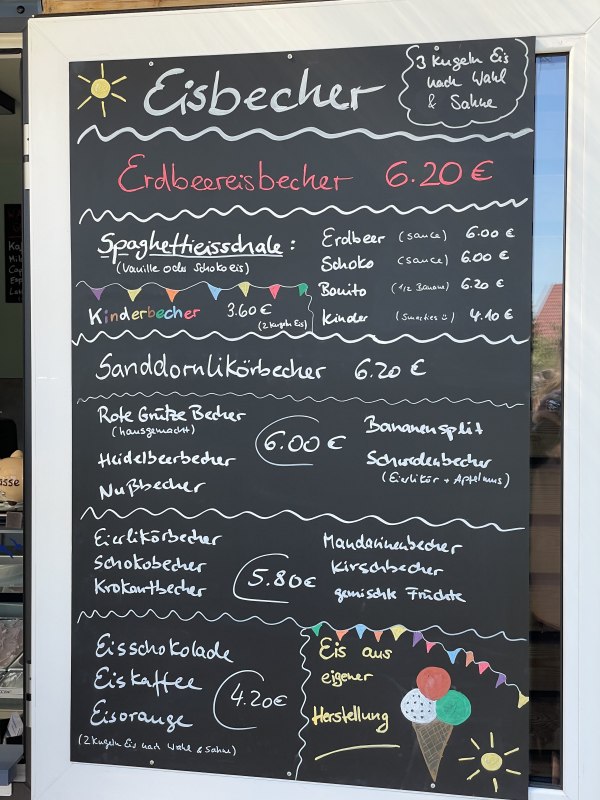 Eisbecher
3 Kugeln Eis
nach Wahl
& Sahne
Erdbeereisbecher 6.20 €
Spaghettieisschale :
(Vanille oder Schokoeis)
Erdbeer (Sauce) 6.00 €
Schoko (Sauce) 6.00 €
Bonito (1/2 Banane) 6.20 €
Kinder (Smarties ü) 4.10 €
Kinderbecher 3.60 €
(2 Kugeln Eis)
Sanddornlikörbecher 6.20 €
Rote Grütze Becher
(hausgemacht)
Heidelbeerbecher
Nußbecher
6.00 €
Bananensplit
Schwedenbecher
(Eierlikör + Apfelmus)
Eierlikörbecher
Schokobecher
Krokantbecher
5.80 €
Mandarinenbecher
Kirschbecher
gemischte Früchte
Eisschokolade
Eiskaffee
Eisorange
4.20 €
(2 Kugeln Eis nach Wahl & Sahne)
Eis aus
eigener
Herstellung
asse